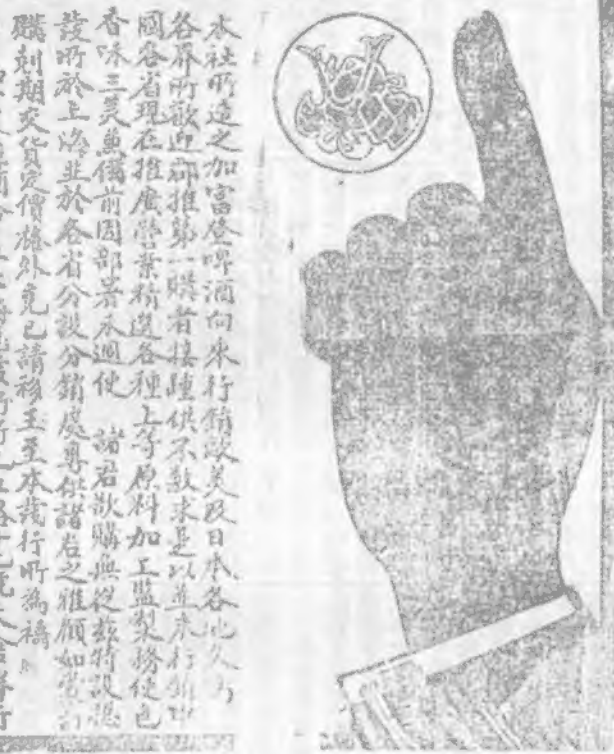 本社所造之加富登啤酒向來行銷歐美及日本各地久為
各界所歡迎群推第一購者接踵供不敷求是以並未行銷中
國各省現在推廣營業精選各種上等原料加工監製務使色
香味三美兼備前因部署未週使 諸君欲購無從茲特設總
發所於上海並於各省分設分銷處專供諸君之雅顧如需訂
購刻期交貨定價格外克已請移玉至本發行所為禱